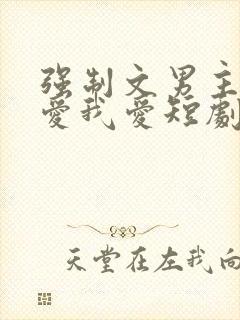 强制文男主
爱我爱短劇
天堂在左我向